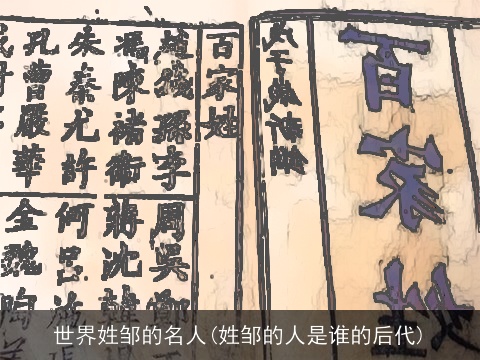 百家姓
戊子歲新鐫
百家姓
趙錢孫李
周吳鄭
馮陳褚衛
蔣沈韓
朱秦尤許
何呂施張
孔曹嚴華
金魏陶
世界姓邹的名人(姓邹的人是谁的后代)